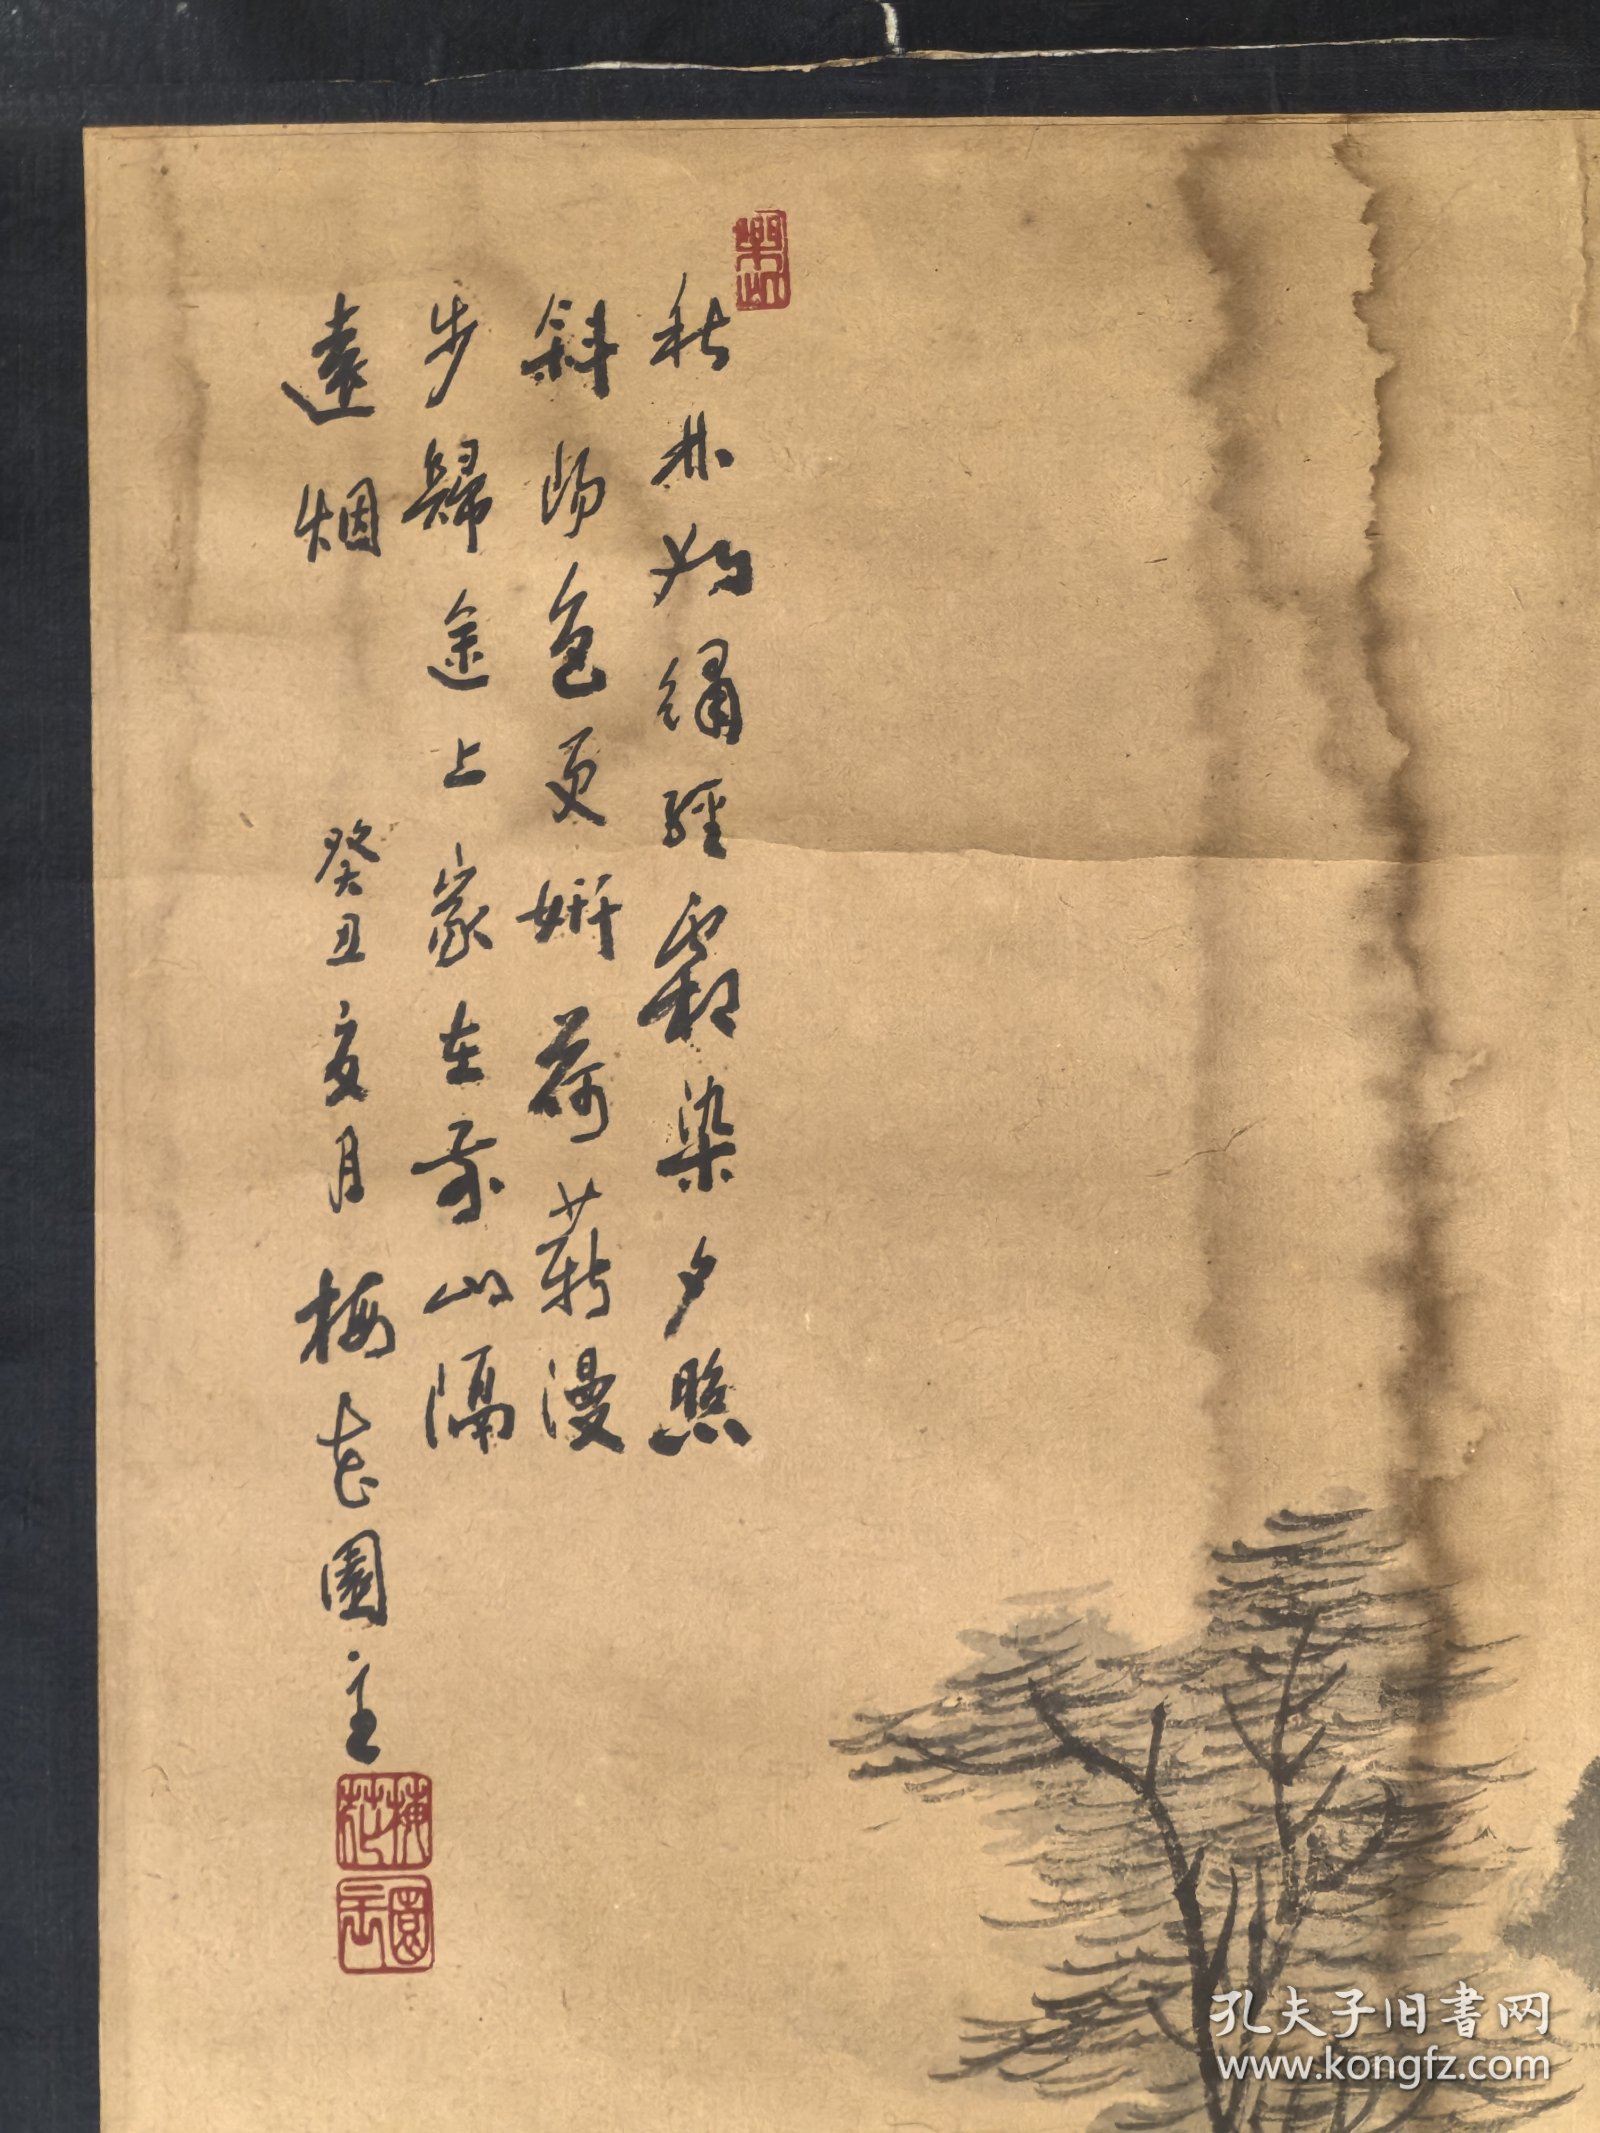 秋林如繡經霜染夕照
斜陽色更妍荷薪漫
步歸途上家在前山隔
遠烟
癸丑亥月梅花園主
梅花
園主
孔夫子旧书网
www.kongfz.com